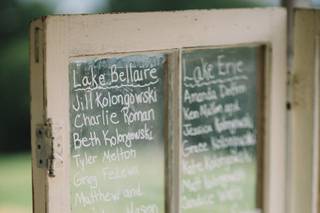 Lake Bellaire
Jill Kolongowski
Charlie Roman
Beth Kolongowski
Tyler Melton
Greg
Matthew and
Lake Erie
Amanda
Ken Mullen and
Jessica Kolongowski
Grace Kolongowski
Kate Kolongowski
Matt Kolongowski
Candice